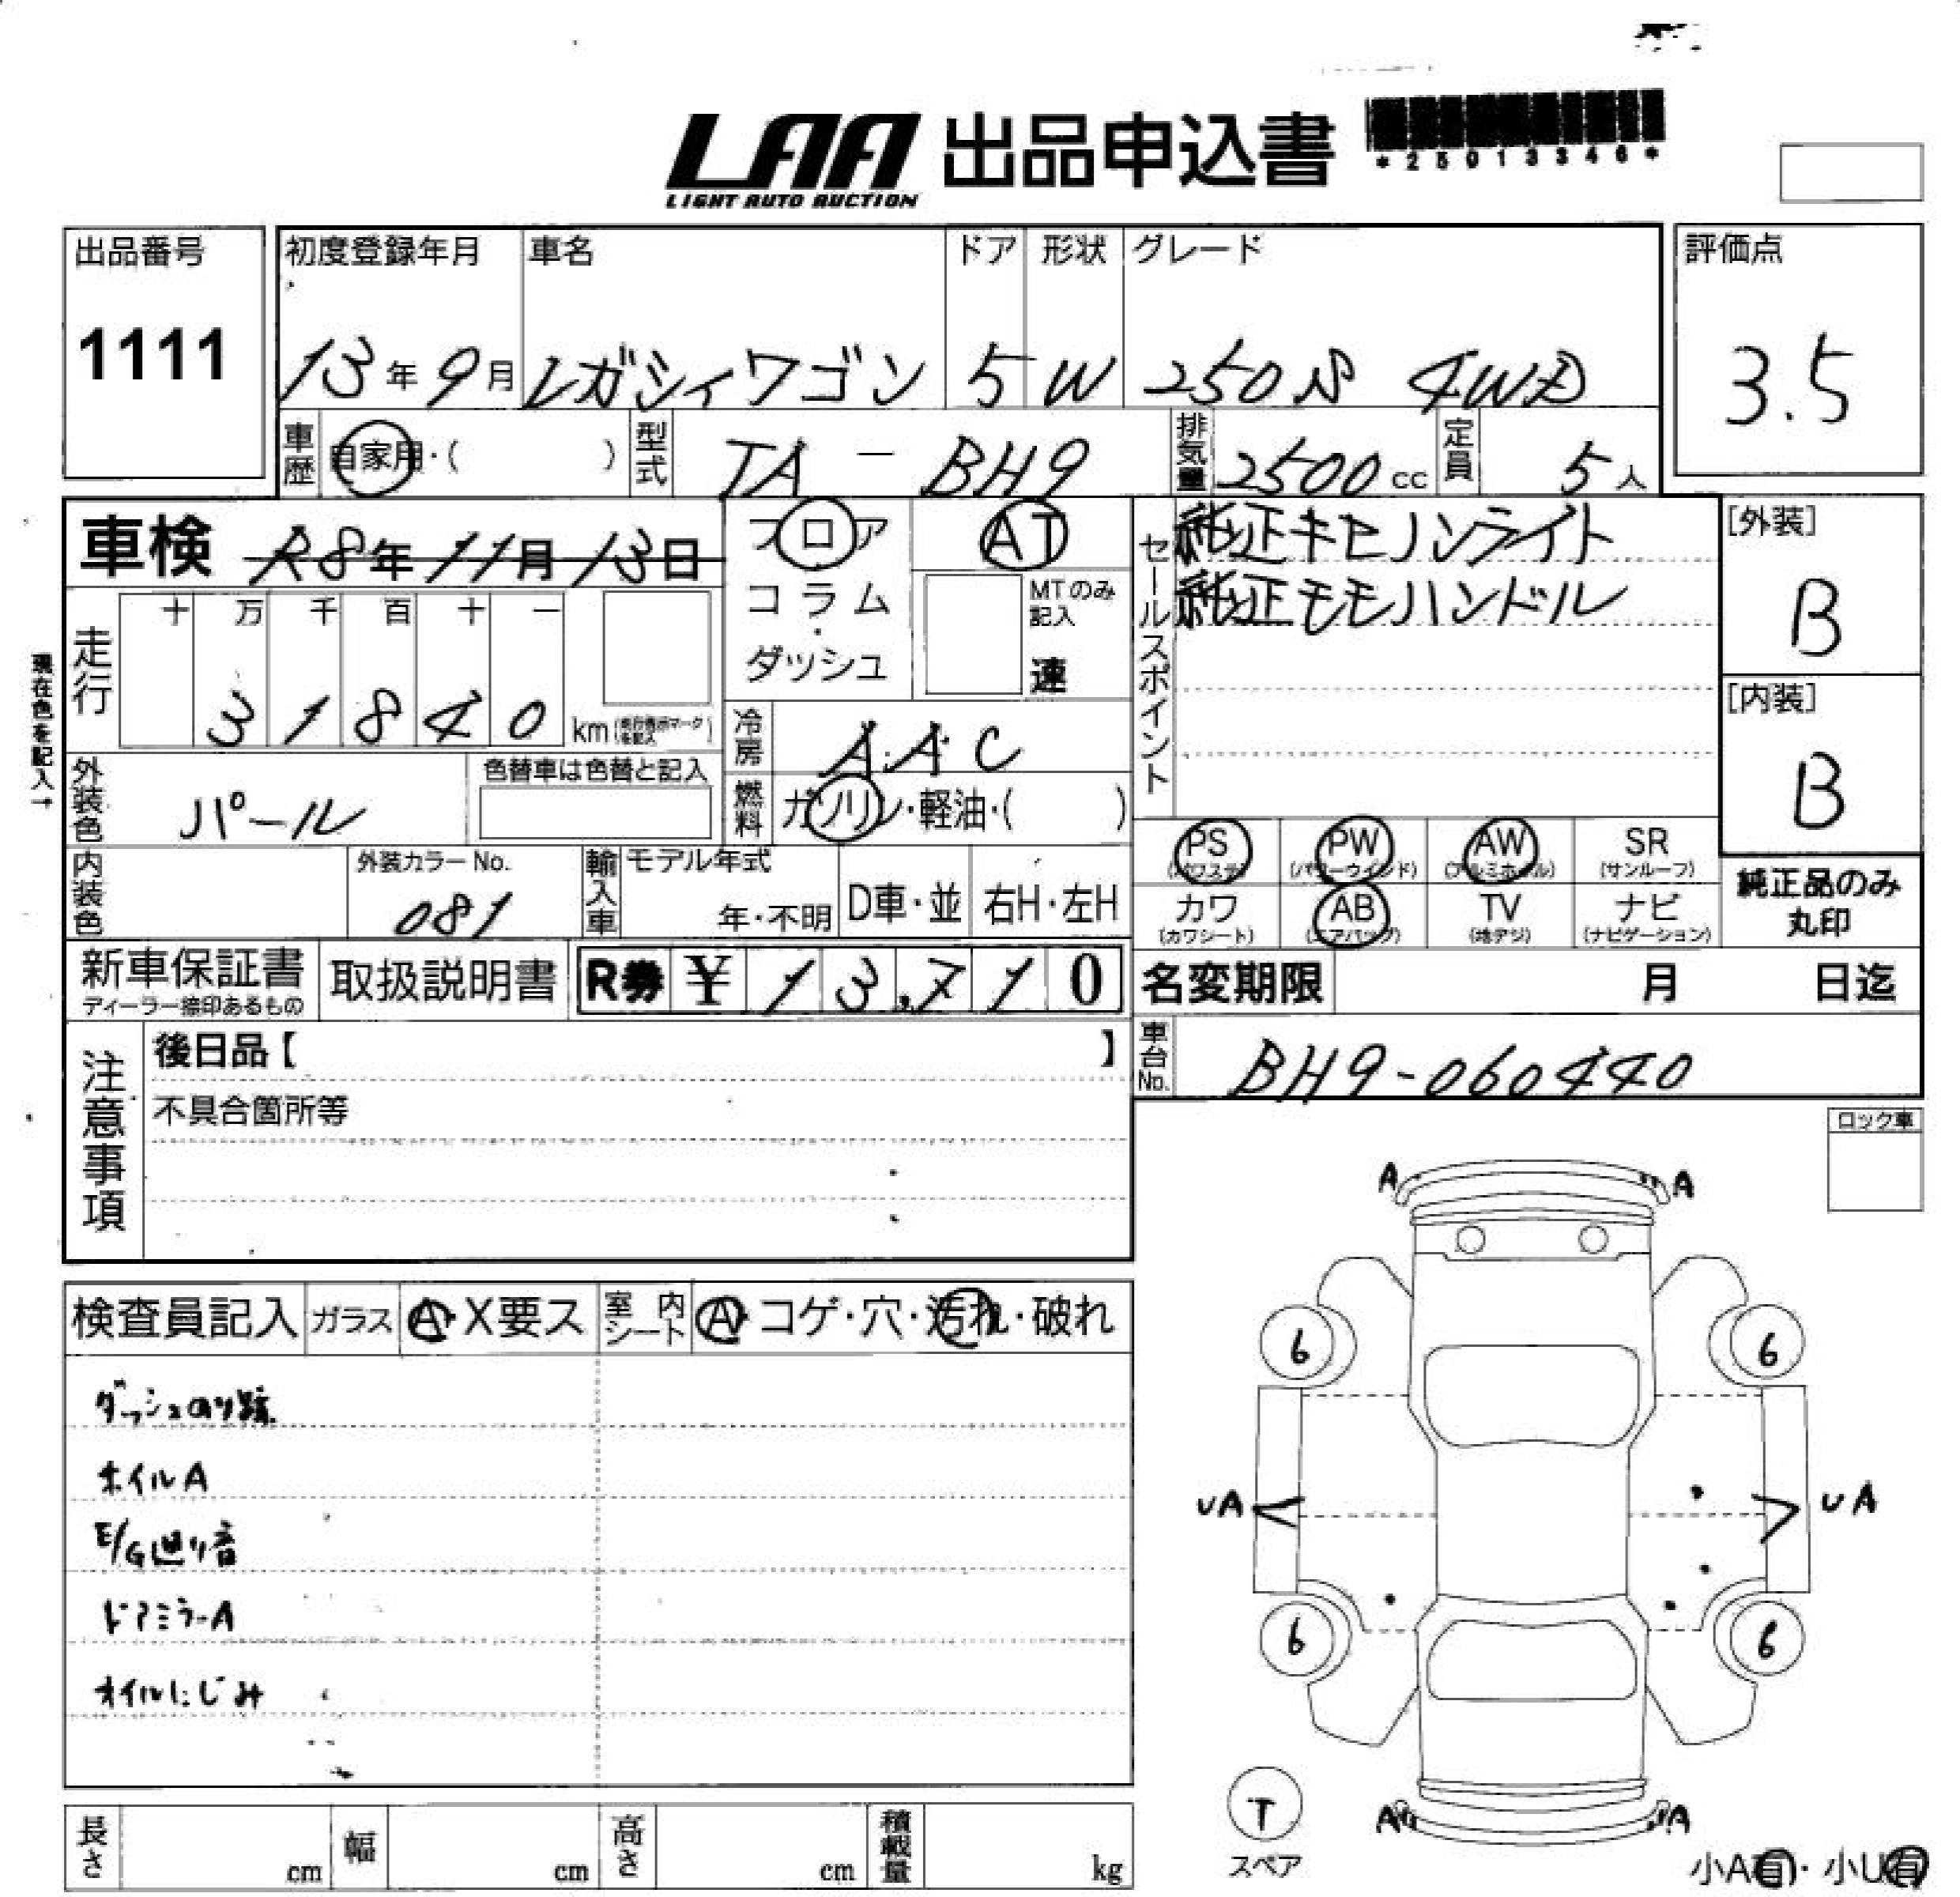 LAA 出品申込書
LIGHT AUTO AUCTION
*25013346*
出品番号
1111
初度登録年月 車名 ドア 形状 グレード
13年9月 レガシィワゴン 5 W 250S 4WD
評価点
3.5
車歴 自家用・( ) 型式 TA-BH9 排気量 2500cc 定員 5人
車検 R8年11月13日
フロア
コラム
・
ダッシュ
AT
MTのみ
記入
速
セールスポイント
純正キセノンライト
純正モモハンドル
[外装]
B
[内装]
B
現在色を記入→
走行
十 万 千 百 十 一
3 1 8 4 0 km (走行表示マークを記入)
冷房 AAC
外装色 パール
色替車は色替と記入
燃料 ガソリン・軽油・( )
PS PW AW SR
(パワステ) (パワーウインド) (アルミホイル) (サンルーフ)
カワ AB TV ナビ
(カワシート) (エアバッグ) (地デジ) (ナビゲーション)
純正品のみ
丸印
内装色
外装カラーNo.
081
輸入車 モデル年式
年・不明 D車・並 右H・左H
新車保証書
ディーラー捺印あるもの
取扱説明書
R券 ¥ 1 3,7 1 0
名変期限 月 日迄
車台No. BH9-060440
注意事項
後日品【 】
不具合箇所等
ロック車
検査員記入 ガラス A・X要ス 室内シート A・コゲ・穴・汚れ・破れ
ダッシュのり跡
ホイルA
E/G廻り音
ドアミラーA
オイルにじみ
A A
6 6
UA UA
6 6
T
スペア
A A
小A有・小U有
長さ cm 幅 cm 高さ cm 積載量 kg